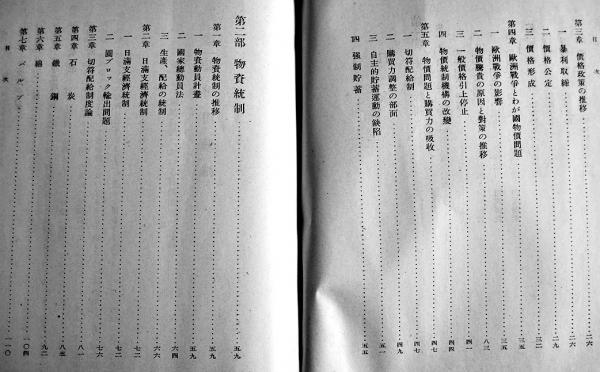 第三章 價格政策の推移 二六
一 暴利取締 二六
二 價格公定 二九
三 價格形成 三二
第四章 歐洲戰爭とわが國物價問題 三五
一 歐洲戰爭の影響 三五
二 物價騰貴の原因と對策の推移 三八
三 一般價格引上停止 四一
四 物價統制機構の改變 四四
第五章 物價問題と購買力の吸收 四七
一 切符配給制 四七
二 購買力調整の部面 四九
三 自主的貯蓄運動の缺陷 五一
四 强制貯蓄 五五
第二部 物資統制 五九
第一章 物資統制の推移 五九
一 物資動員計畫 五九
二 國家總動員法 六四
三 生產、配給の統制 六六
第二章 日滿支經濟統制 七二
一 日滿支經濟統制 七二
二 圓ブロック輸出問題 七六
第三章 切符配給制度論
第四章 石炭 八二
第五章 鐵鋼 八五
第六章 綿 九二
第七章 パルプ 一〇四
目次